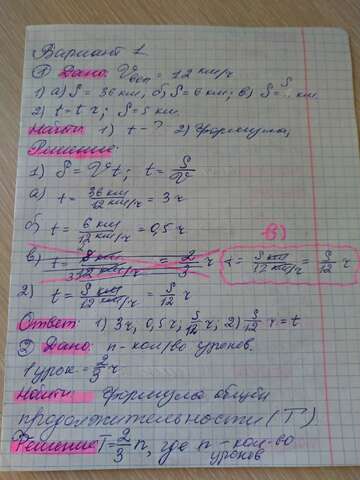 Вариант 1.
① Дано: Vвел = 12 км/ч
1) а) S = 36 км, б) S = 6 км; в) S = S км.
2) t = t ч; S = S км.
Найти: 1) t - ? 2) Формула
Решение:
1) S = Vt; t = S/V
а) t = 36 км/12 км/ч = 3 ч
б) t = 6 км/12 км/ч = 0,5 ч
в) t = 8 км/12 км/ч = 2/3 ч
в)
t = S км/12 км/ч = S/12 ч
2) t = S км/12 км/ч = S/12 ч
Ответ: 1) 3 ч, 0,5 ч, S/12 ч, 2) S/12 ч = t
② Дано: n - кол/во уроков.
1 урок = 2/3 ч
Найти: Формула общей
продолжительности (T)
Решение T = 2/3 n, где n - кол-во
уроков